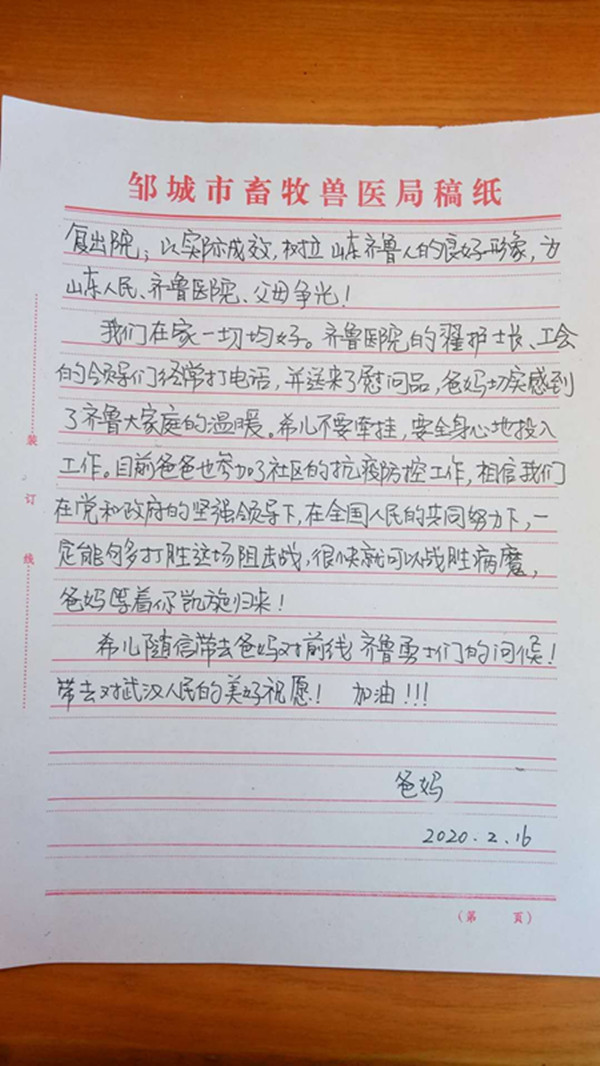 邹城市畜牧兽医局稿纸
复出院；以实际成效，树立山东齐鲁人的良好形象，为
山东人民、齐鲁医院、父母争光！
我们在家一切均好。齐鲁医院的翟护士长、工会
的领导们经常打电话，并送来了慰问品，爸妈切实感到
了齐鲁大家庭的温暖。希儿不要牵挂，要全身心地投入
工作。目前爸爸也参加了社区的抗疫防控工作，相信我们
在党和政府的坚强领导下，在全国人民的共同努力下，一
定能够打胜这场阻击战，很快就可以战胜病魔，
爸妈等着你凯旋归来！
希儿随信带去爸妈对前线齐鲁勇士们的问候！
带去对武汉人民的美好祝愿！ 加油！！！
爸妈
2020.2.16
（第 页）
装
订
线